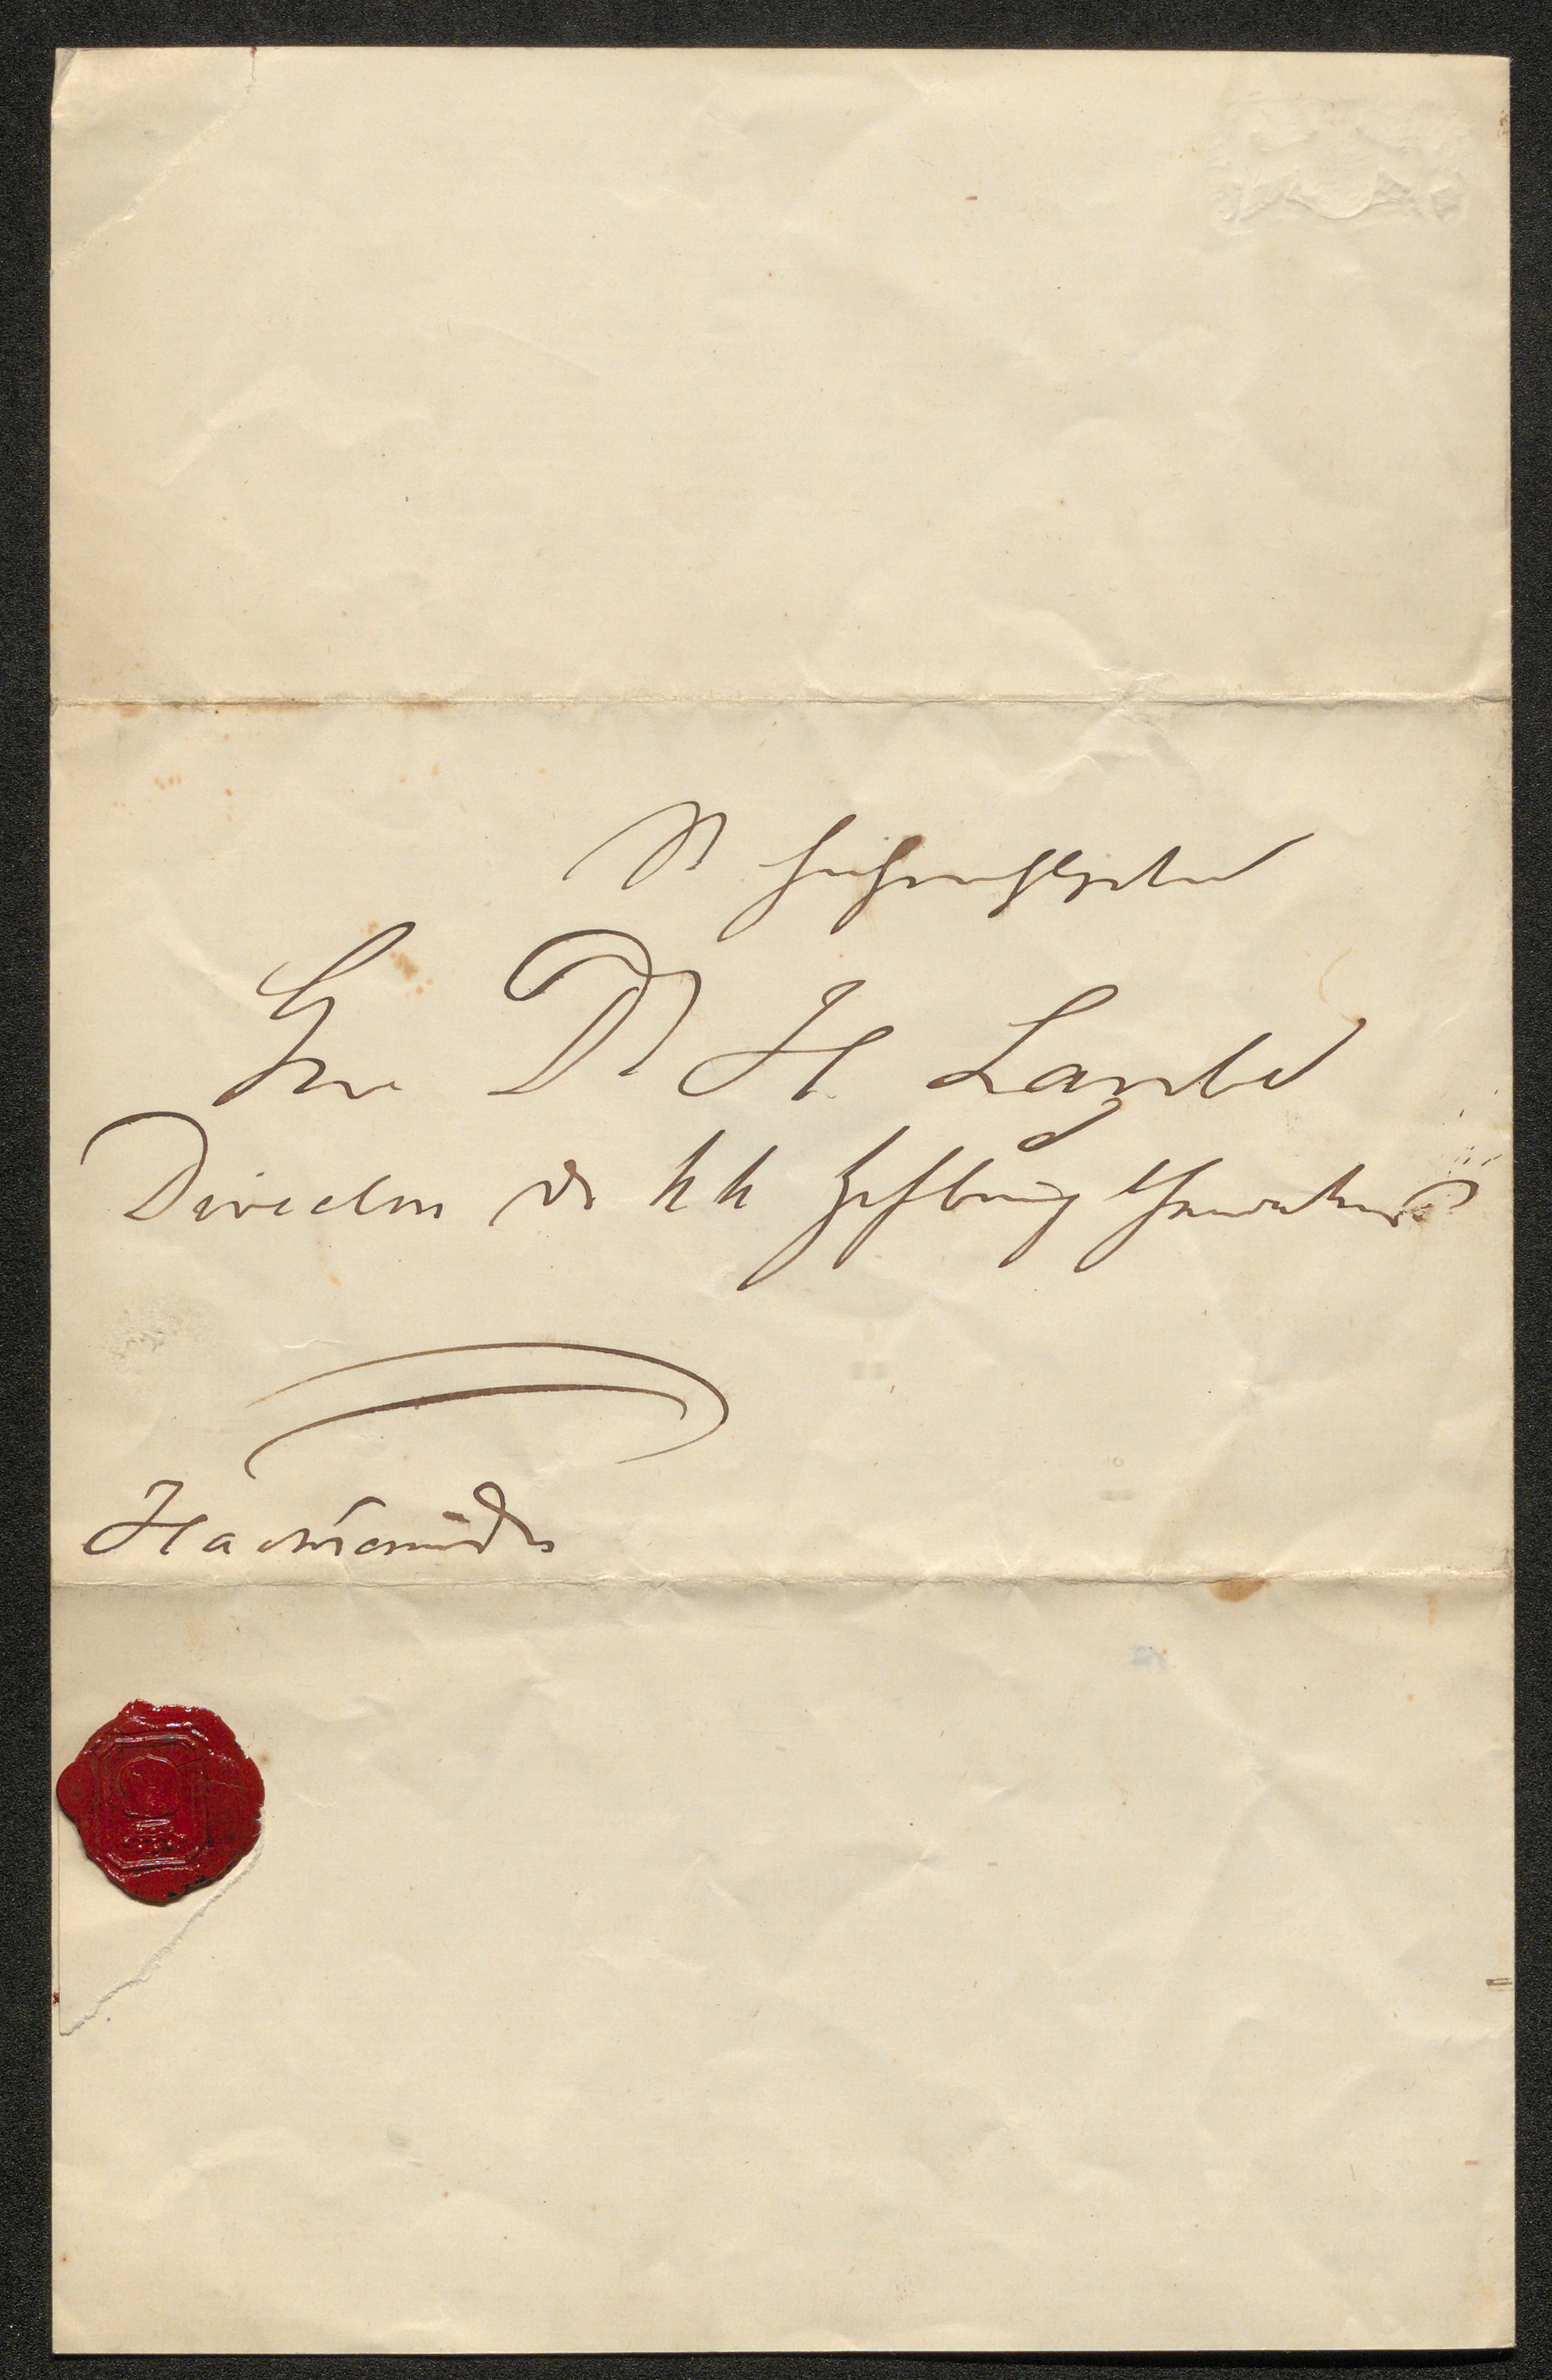 Hochwohlgeboren
Herrn Dr H Laube
Director des k k Hofburg Theaters